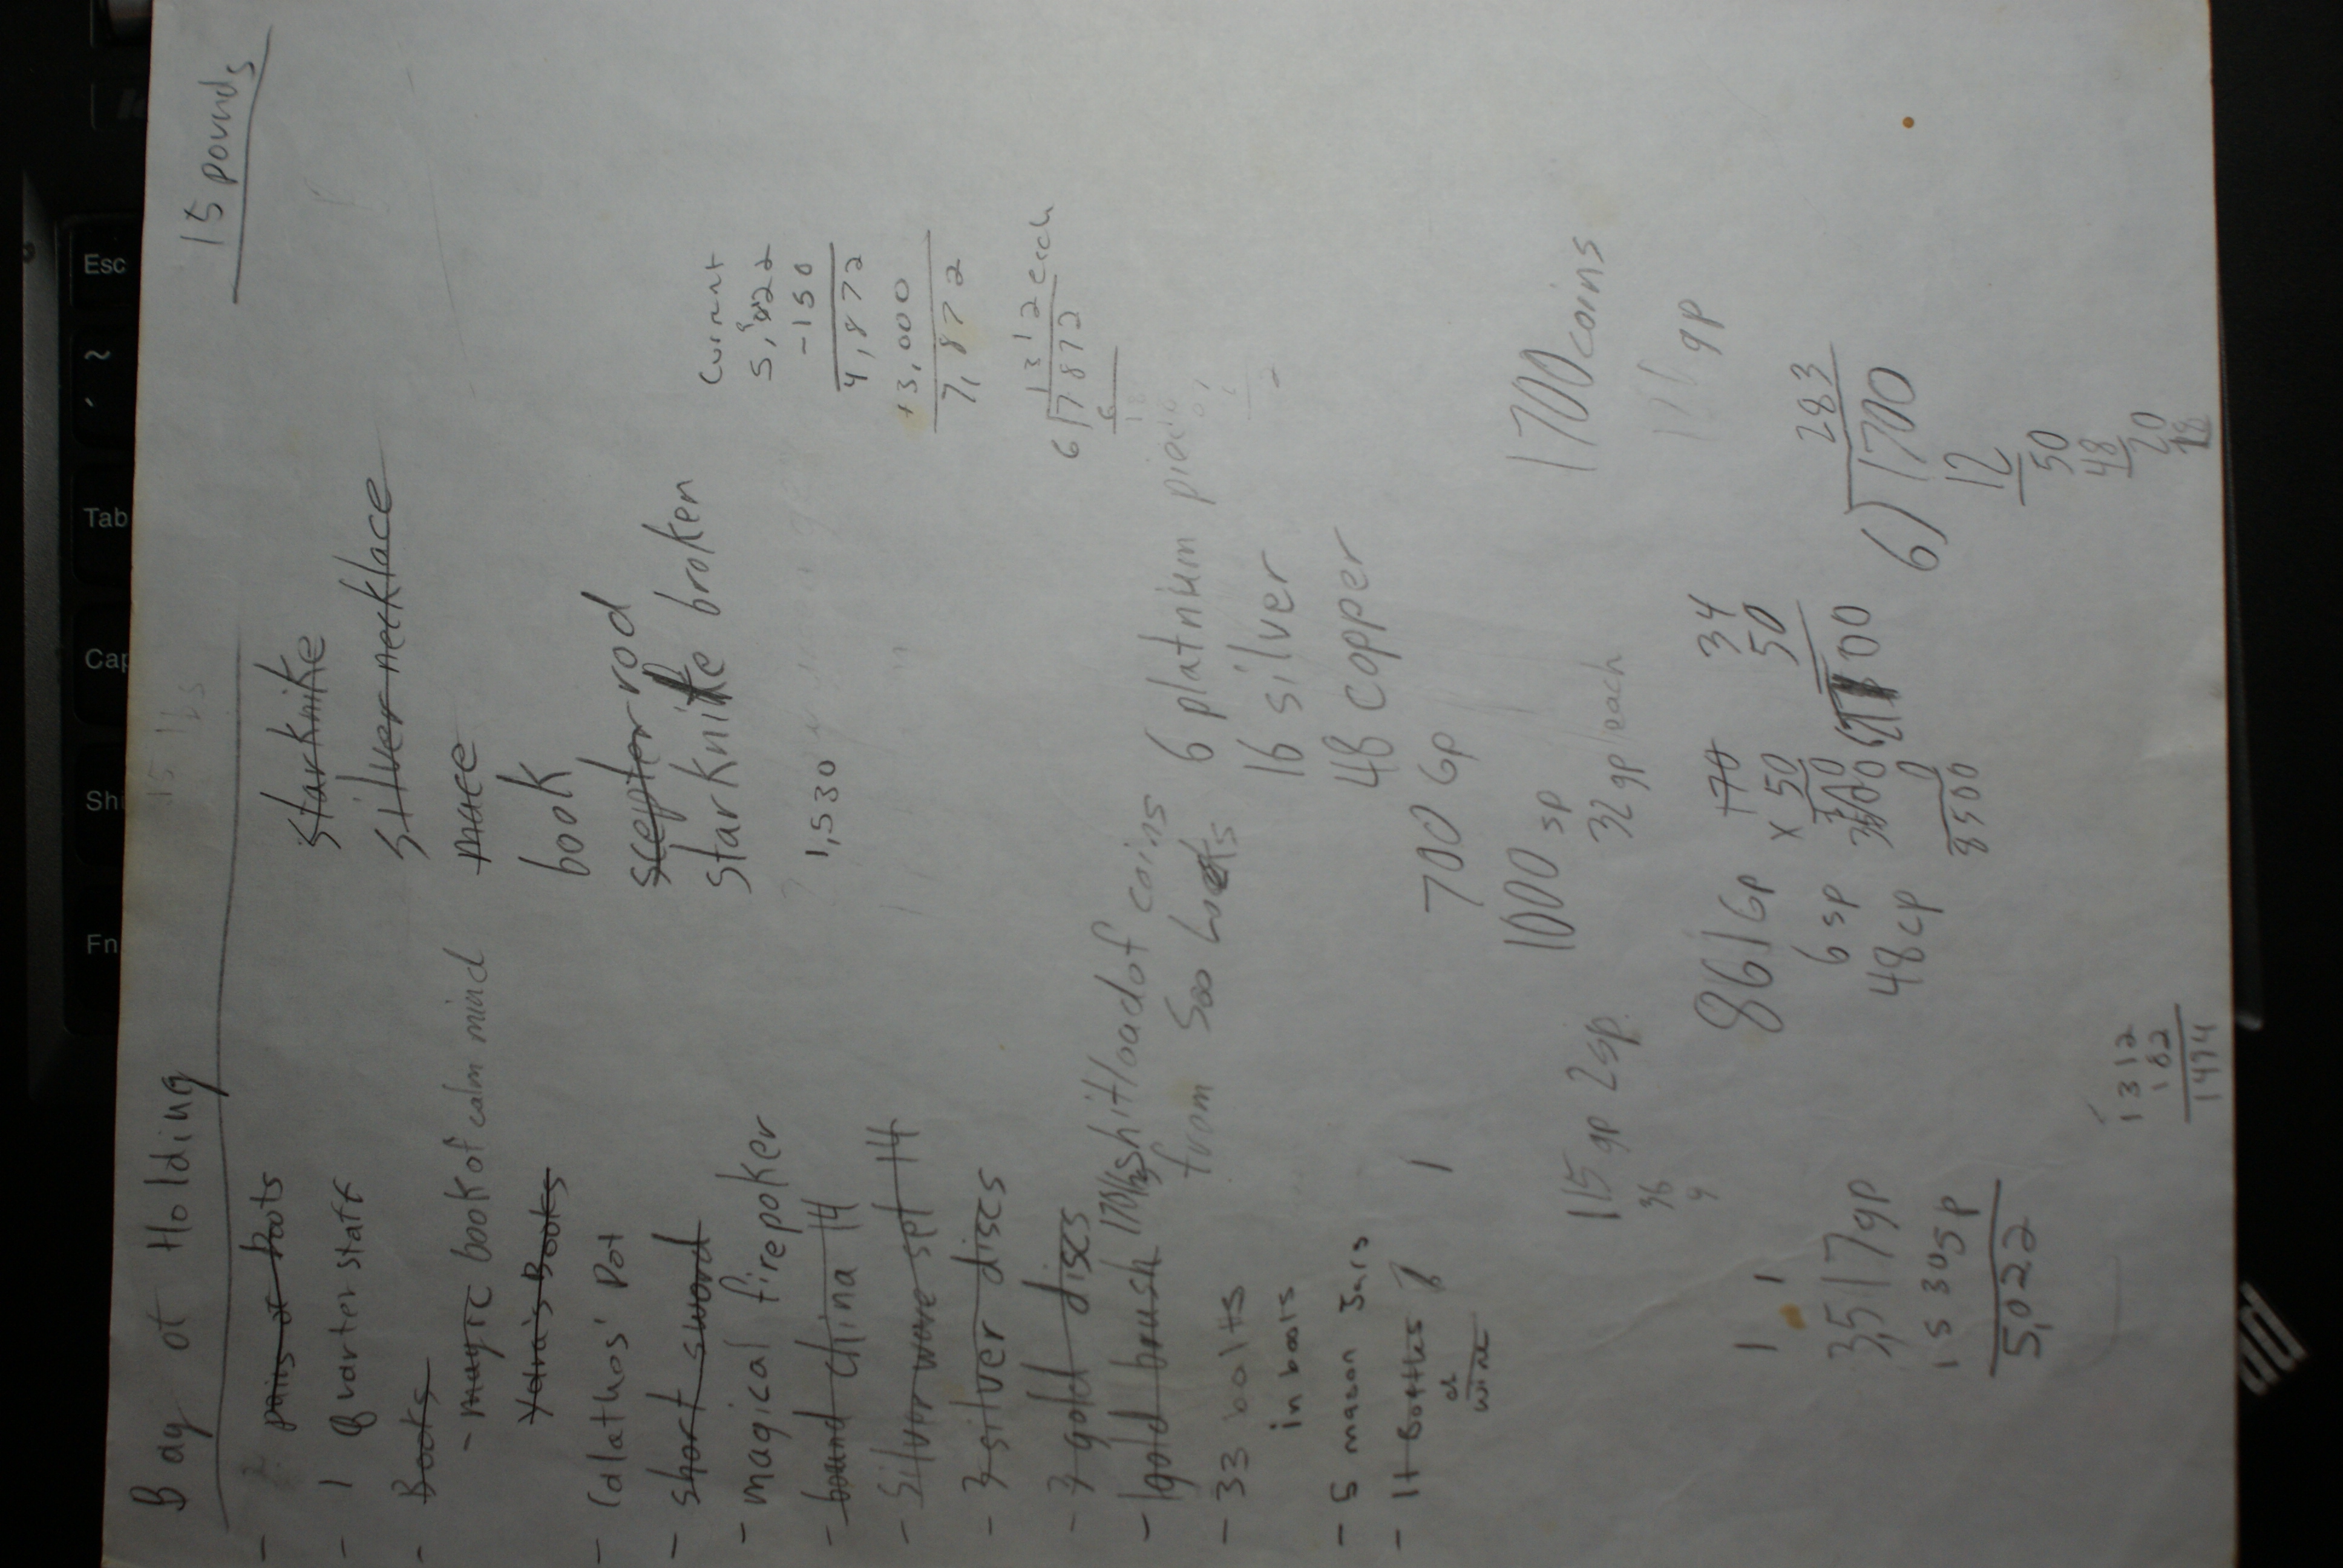 Bag of Holding
15 lbs
15 pounds
- pairs of boots
- 1 Quarterstaff
- Books
- magic book of calm mind
Books
- Calathos' Pot
- short sword
- magical firepoker
- bound china 14
- Silverware set 14
- 3 silver discs
- 3 gold discs
- 1 gold brush
170 lbs shitload of coins
from 500
- 33 bolts
in boots
- 5 mason Jars
- 1t Bottles
of
wine
1
starknife
silver necklace
mace
book
scepter rod
starknife broken
1,530
Current
5,022
-150
4,872
+3,000
7,872
1312 each
6)7872
6
6 platnium pieces
16 silver
48 copper
700 Gp
1000 sp
1700 coins
32 gp each
115 gp 2sp
36
9
8616p
6 sp
48 cp
170
x 50
8500
34
50
283
6)1700
12
50
48
20
18
1 1
3,517gp
1530sp
5,022
1312
182
1494
Esc
~
Tab
Fn